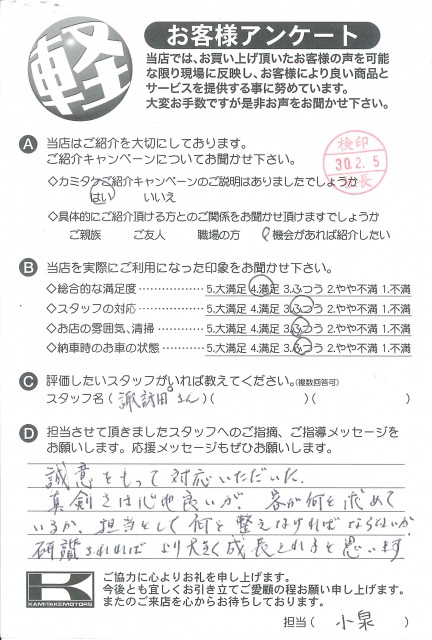 軽
お客様アンケート
当店では、お買い上げ頂いたお客様の声を可能
な限り現場に反映し、お客様により良い商品と
サービスを提供する事に努めています。
大変お手数ですが是非お声をお聞かせ下さい。
A 当店はご紹介を大切にしております。
ご紹介キャンペーンについてお聞かせ下さい。
検印
30.2.5
◇カミタケご紹介キャンペーンのご説明はありましたでしょうか
はい いいえ
◇具体的にご紹介頂ける方とのご関係をお聞かせ頂けますでしょうか
ご親族 ご友人 職場の方 機会があれば紹介したい
B 当店を実際にご利用になった印象をお聞かせ下さい。
◇総合的な満足度 5.大満足 4.満足 3.ふつう 2.やや不満 1.不満
◇スタッフの対応 5.大満足 4.満足 3.ふつう 2.やや不満 1.不満
◇お店の雰囲気、清掃 5.大満足 4.満足 3.ふつう 2.やや不満 1.不満
◇納車時のお車の状態 5.大満足 4.満足 3.ふつう 2.やや不満 1.不満
C 評価したいスタッフがいれば教えてください。(複数回答可)
スタッフ名(諏訪田さん)( )( )
D 担当させて頂きましたスタッフへのご指摘、ご指導メッセージを
お願いします。応援メッセージもぜひお願いします。
誠意をもって対応いただいた。
真剣さは心地良いが、客が何を求めて
いるか、担当として何を整えなければならないか
研鑽されれば より大きく成長されると思います
K
KAMITAKE MOTORS
ご協力に心よりお礼を申し上げます。
今後とも宜しくお引き立てご愛顧の程お願い申し上げます。
またのご来店を心からお待ちしております。
担当( 小泉 )